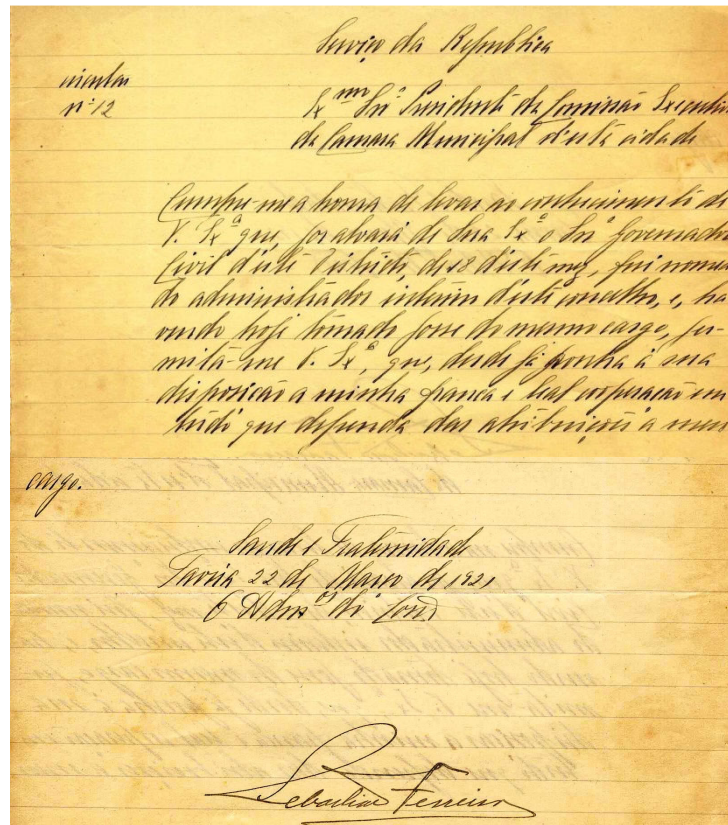 Serviço da Republica
circular
nº 12
Exmo Snr Presidente da Comissão Executiva
da Camara Municipal d'esta cidade
Cumpre-me a honra de levar ao conhecimento de
V. Exª que, por alvará de Sua Exª o Snr Governador
Civil d'este Districto, de 18 d'este mez, fui nomea
do administrador interino d'este concelho, e, ha
vendo hoje tomado posse do mesmo cargo, per-
mita-me V. Exª, que, desde já ponha á sua
disposição a minha franca e leal cooperação em
tudo que dependa das atribuições a meu
cargo.
Saude e Fraternidade
Tavira 22 de Março de 1921
O Admor do Conc
Sebastião Ferreira